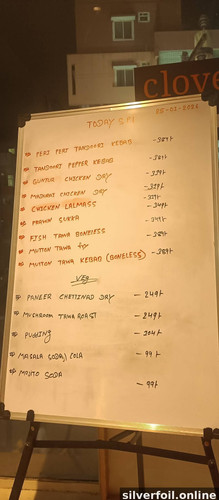 clove
TODAY SPL
PERI PERI TANDOORI KEBAB - 389/-
TANDOORI PEPPER KEBAB - 389/-
GUNTUR CHICKEN DRY - 329/-
MADHURI CHICKEN DRY - 329/-
CHICKEN LALMASS
PRAWN SUKKA
FISH TAWA BONELESS - 389/-
MUTTON TAWA FRY
MUTTON TAWA KEBAO (BONELESS) - 389/-
VEG
PANEER CHETTINAD DRY - 249/-
MUSHROOM TAWA ROAST - 249/-
PUDDING - 204/-
MASALA SODA / COLA - 99/-
MOJITO SODA - 99/-
silverfoil.online